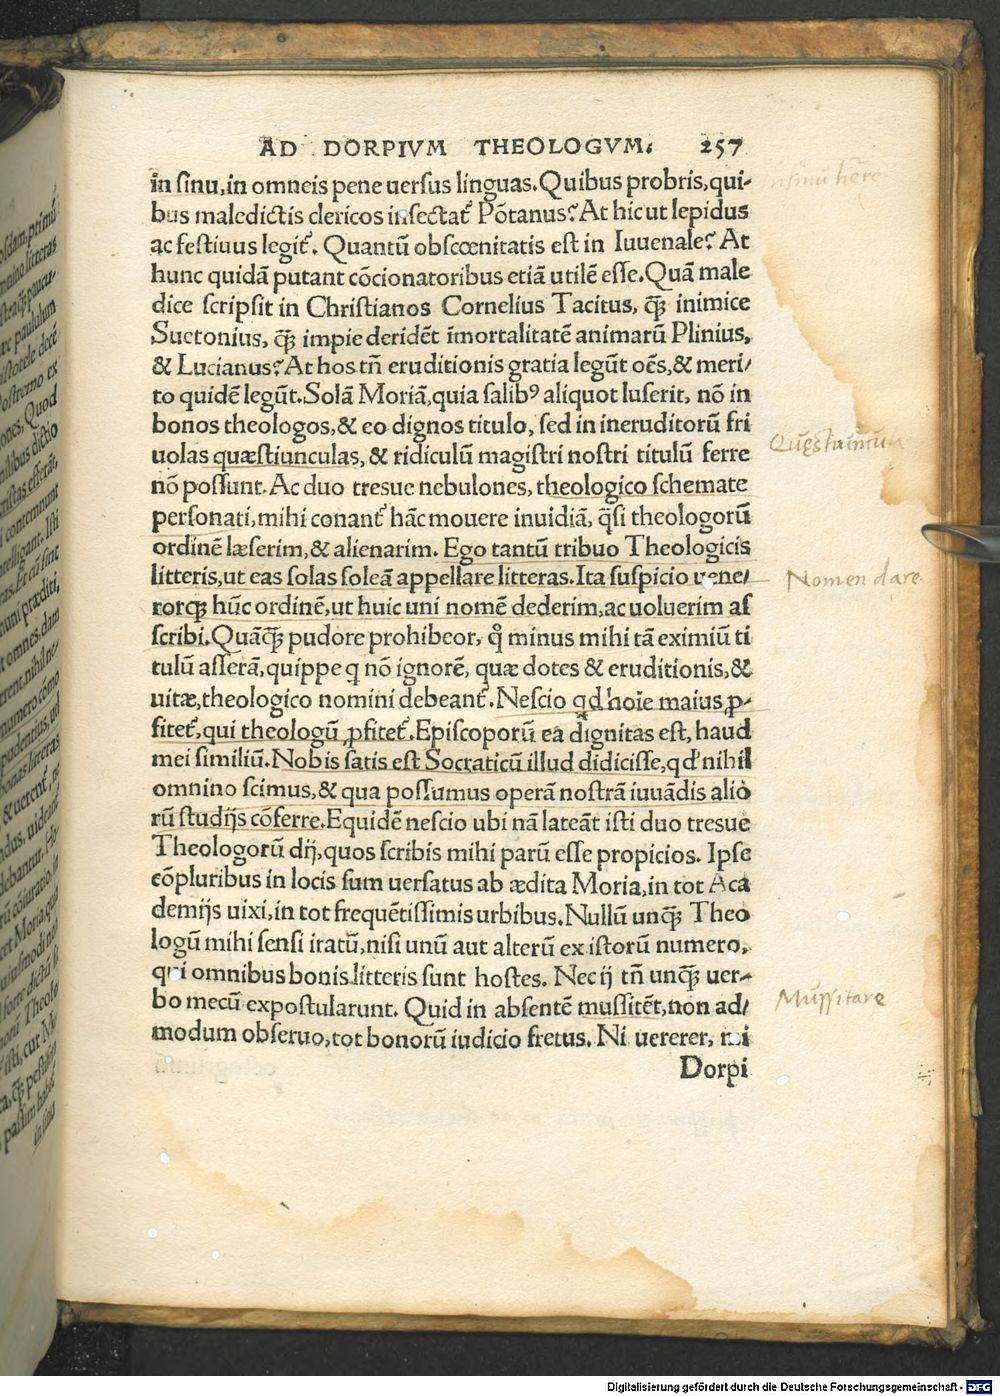 AD DORPIVM THEOLOGVM. 257
in sinu, in omneis pene uersus linguas. Quibus probris, qui-
bus maledictis clericos insectat᷑ Põtanus? At hic ut lepidus
ac festiuus legit᷑. Quantũ obscœnitatis est in Iuuenale? At
hunc quidã putant cõcionatoribus etiã utilẽ esse. Quã male
dice scripsit in Christianos Cornelius Tacitus, q̃ꝫ inimice
Suetonius, q̃ꝫ impie deridẽt ĩmortalitatẽ animarũ Plinius,
& Lucianus? At hos tñ eruditionis gratia legũt oẽs, & meri/
to quidẽ legũt. Solã Moriã, quia salibꝰ aliquot luserit, nõ in
bonos theologos, & eo dignos titulo, sed in ineruditorũ fri
uolas quæstiunculas, & ridiculũ magistri nostri titulũ ferre
nõ possunt. Ac duo tresue nebulones, theologico schemate
personati, mihi conant᷑ hãc mouere inuidiã, q̃si theologorũ
ordinẽ læserim, & alienarim. Ego tantũ tribuo Theologicis
litteris, ut eas solas soleã appellare litteras. Ita suspicio uene/
rorqꝫ hũc ordinẽ, ut huic uni nomẽ dederim, ac uoluerim as
scribi. Quãq̃ꝫ pudore prohibeor, q̊ minus mihi tã eximiũ ti
tulũ asserã, quippe q nõ ignorẽ, quæ dotes & eruditionis, &
uitæ, theologico nomini debeant᷑. Nescio qd hoĩe maius ꝓ-
fitet᷑, qui theologũ ꝓfitet᷑. Episcoporũ ea dignitas est, haud
mei similiũ. Nobis satis est Socraticũ illud didicisse, qd' nihil
omnino scimus, & qua possumus operã nostrã iuuãdis alio
rũ studijs cõferre. Equidẽ nescio ubi nã lateãt isti duo tresue
Theologorũ dij, quos scribis mihi parũ esse propicios. Ipse
cõpluribus in locis sum uersatus ab ædita Moria, in tot Aca
demijs uixi, in tot frequẽtissimis urbibus. Nullũ unq̃ꝫ Theo
logũ mihi sensi iratũ, nisi unũ aut alterũ ex istorũ numero,
qui omnibus bonis litteris sunt hostes. Nec ij tñ unq̃ꝫ uer-
bo mecũ expostularunt. Quid in absentẽ mussitẽt, non ad/
modum obseruo, tot bonorũ iudicio fretus. Ni uererer, mi
Dorpi
Nomen dare
Mussitare
Digitalisierung gefördert durch die Deutsche Forschungsgemeinschaft - DFG